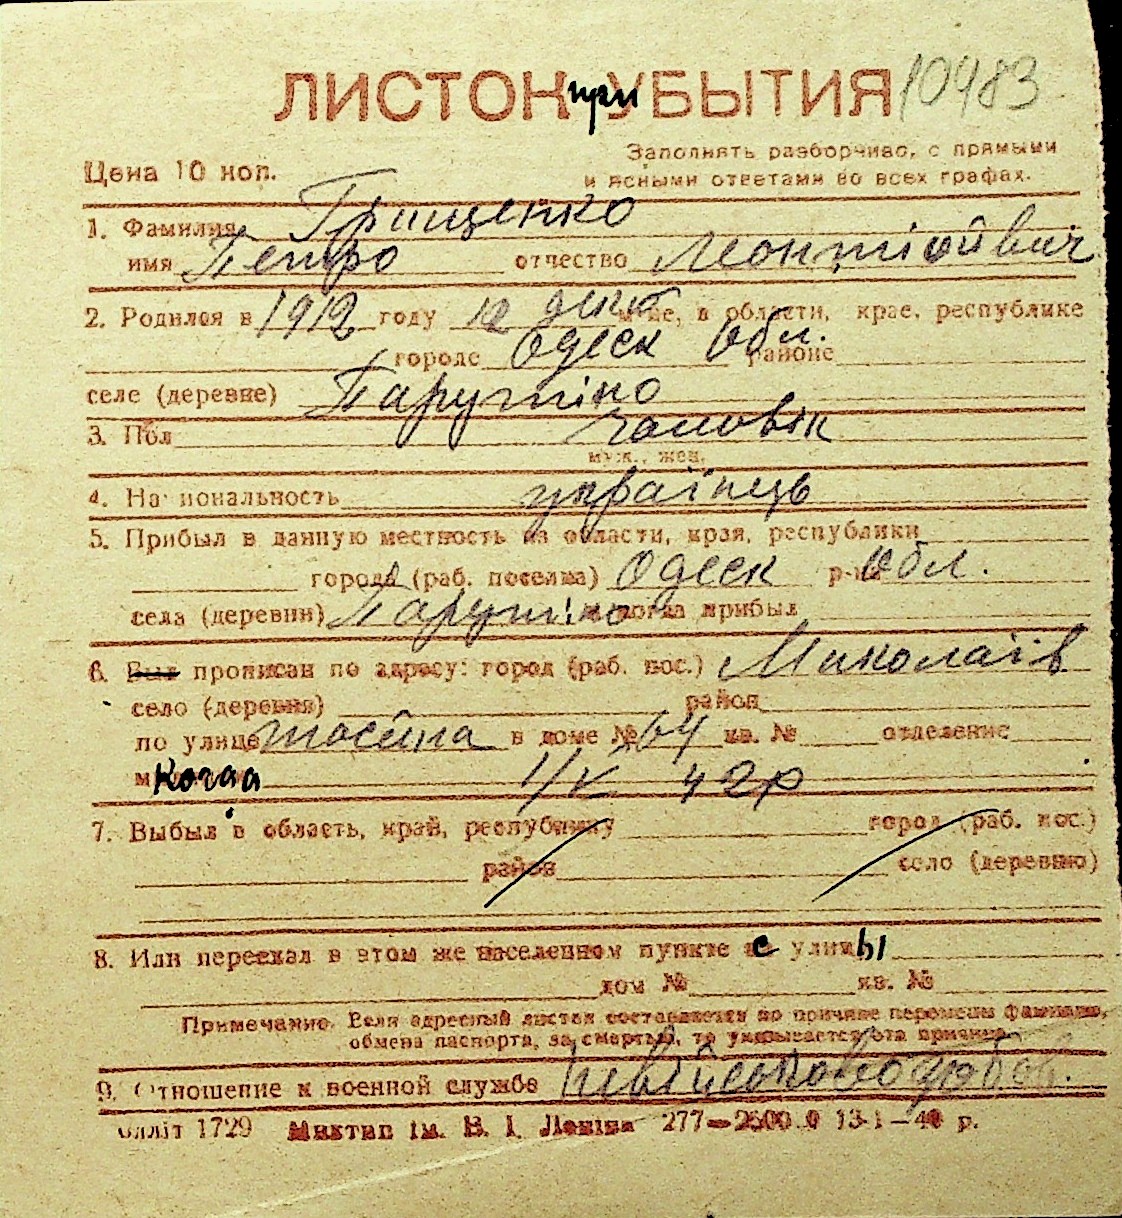 ЛИСТОК при УБЫТИЯ 10483
Цена 10 коп.
Заполнять разборчиво, с прямыми
и ясными ответами во всех графах.
1. Фамилия Грищенко
имя Петро отчество Леонтійович
2. Родился в 1912 году 12 м-це, в области, крае, республике
городе Одеск Обл. районе
селе (деревне) Парутіно
3. Пол чоловік
муж., жен.
4. Национальность українець
5. Прибыл в данную местность из области, края, республики
города (раб. поселка) Одеск р-на Обл.
села (деревни) Парутіно когда прибыл
6. Был прописан по адресу: город (раб. пос.) Миколаїв
село (деревня) район
по улице в доме № 64 кв. № отделение
Когда 1/V 42р
7. Выбыл в область, край, республику город (раб. пос.)
район село (деревню)
8. Или переехал в этом же населенном пункте с улицы
дом № кв. №
Примечание. Если адресный листок составляется по причине перемены фамилии,
обмена паспорта, за смертью, то указывается эта причина.
9. Отношение к военной службе Невійськовозобов.
1729 Миктип ім. В. І. Леніна 277—2500.0 13-1—40 р.